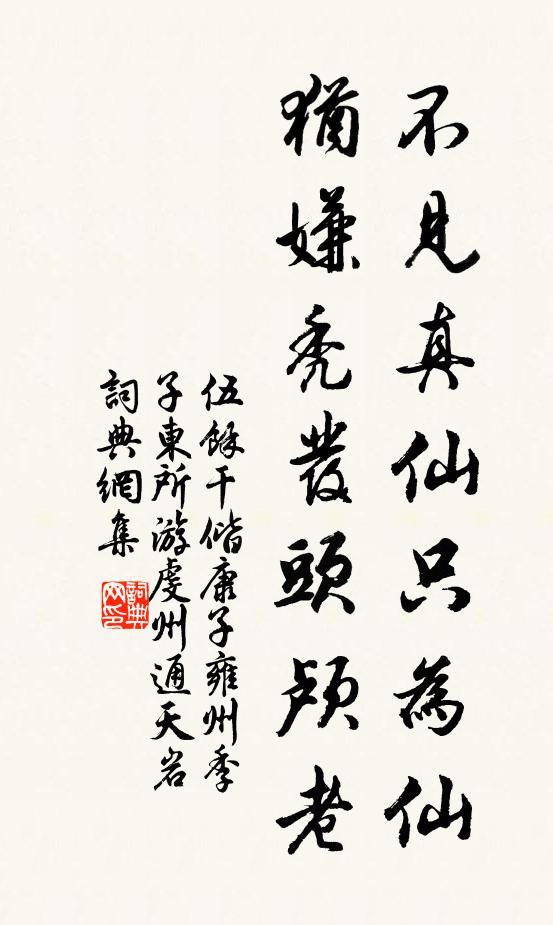 不見真仙只為仙
猶嫌禿發頭颅老
伍餘干偕康子雍州季
子東所游虔州通天岩
詞典網集
詞典网印